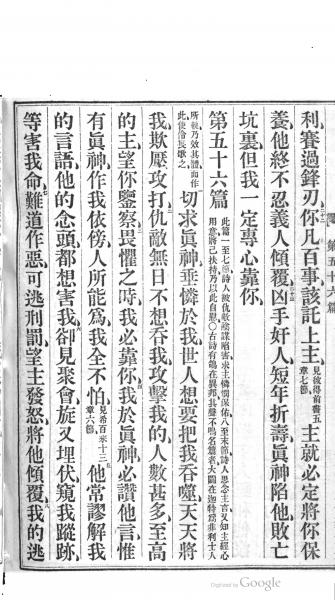 利賽過鋒刃你凡百事該託上主見彼得前書五章七節主就必定將你保
養他終不忍義人傾覆凶手奸人短年折壽眞神陷他敗亡
坑裏但我一定專心靠你
第五十六篇
此篇一至七節詩人被仇敵陰謀陷害求主憐憫保佑八至末節詩人思念主言又知主經心
用意將己扶持乃以此自慰○古詩有鴿在異邦其聲不鳴名篇者大闢在迦特爲非利士人
所執乃效其體而作
此使伶長歌之
切求眞神垂憐於我世人想要把我吞噬天天將
我欺壓攻打仇敵無日不想吞我攻擊我的人數甚多至高
的主望你鑒察畏懼之時我必靠你我於眞神必讚他言惟
有眞神作我依傍人所能爲我全不怕見希百來十三章六節他常謬解我
的言語他的念頭都想害我卻見聚會旋又埋伏窺我蹤跡
等害我命難道作惡可逃刑罰望主發怒將他傾覆我的逃
第五十六篇
Digitized by Google